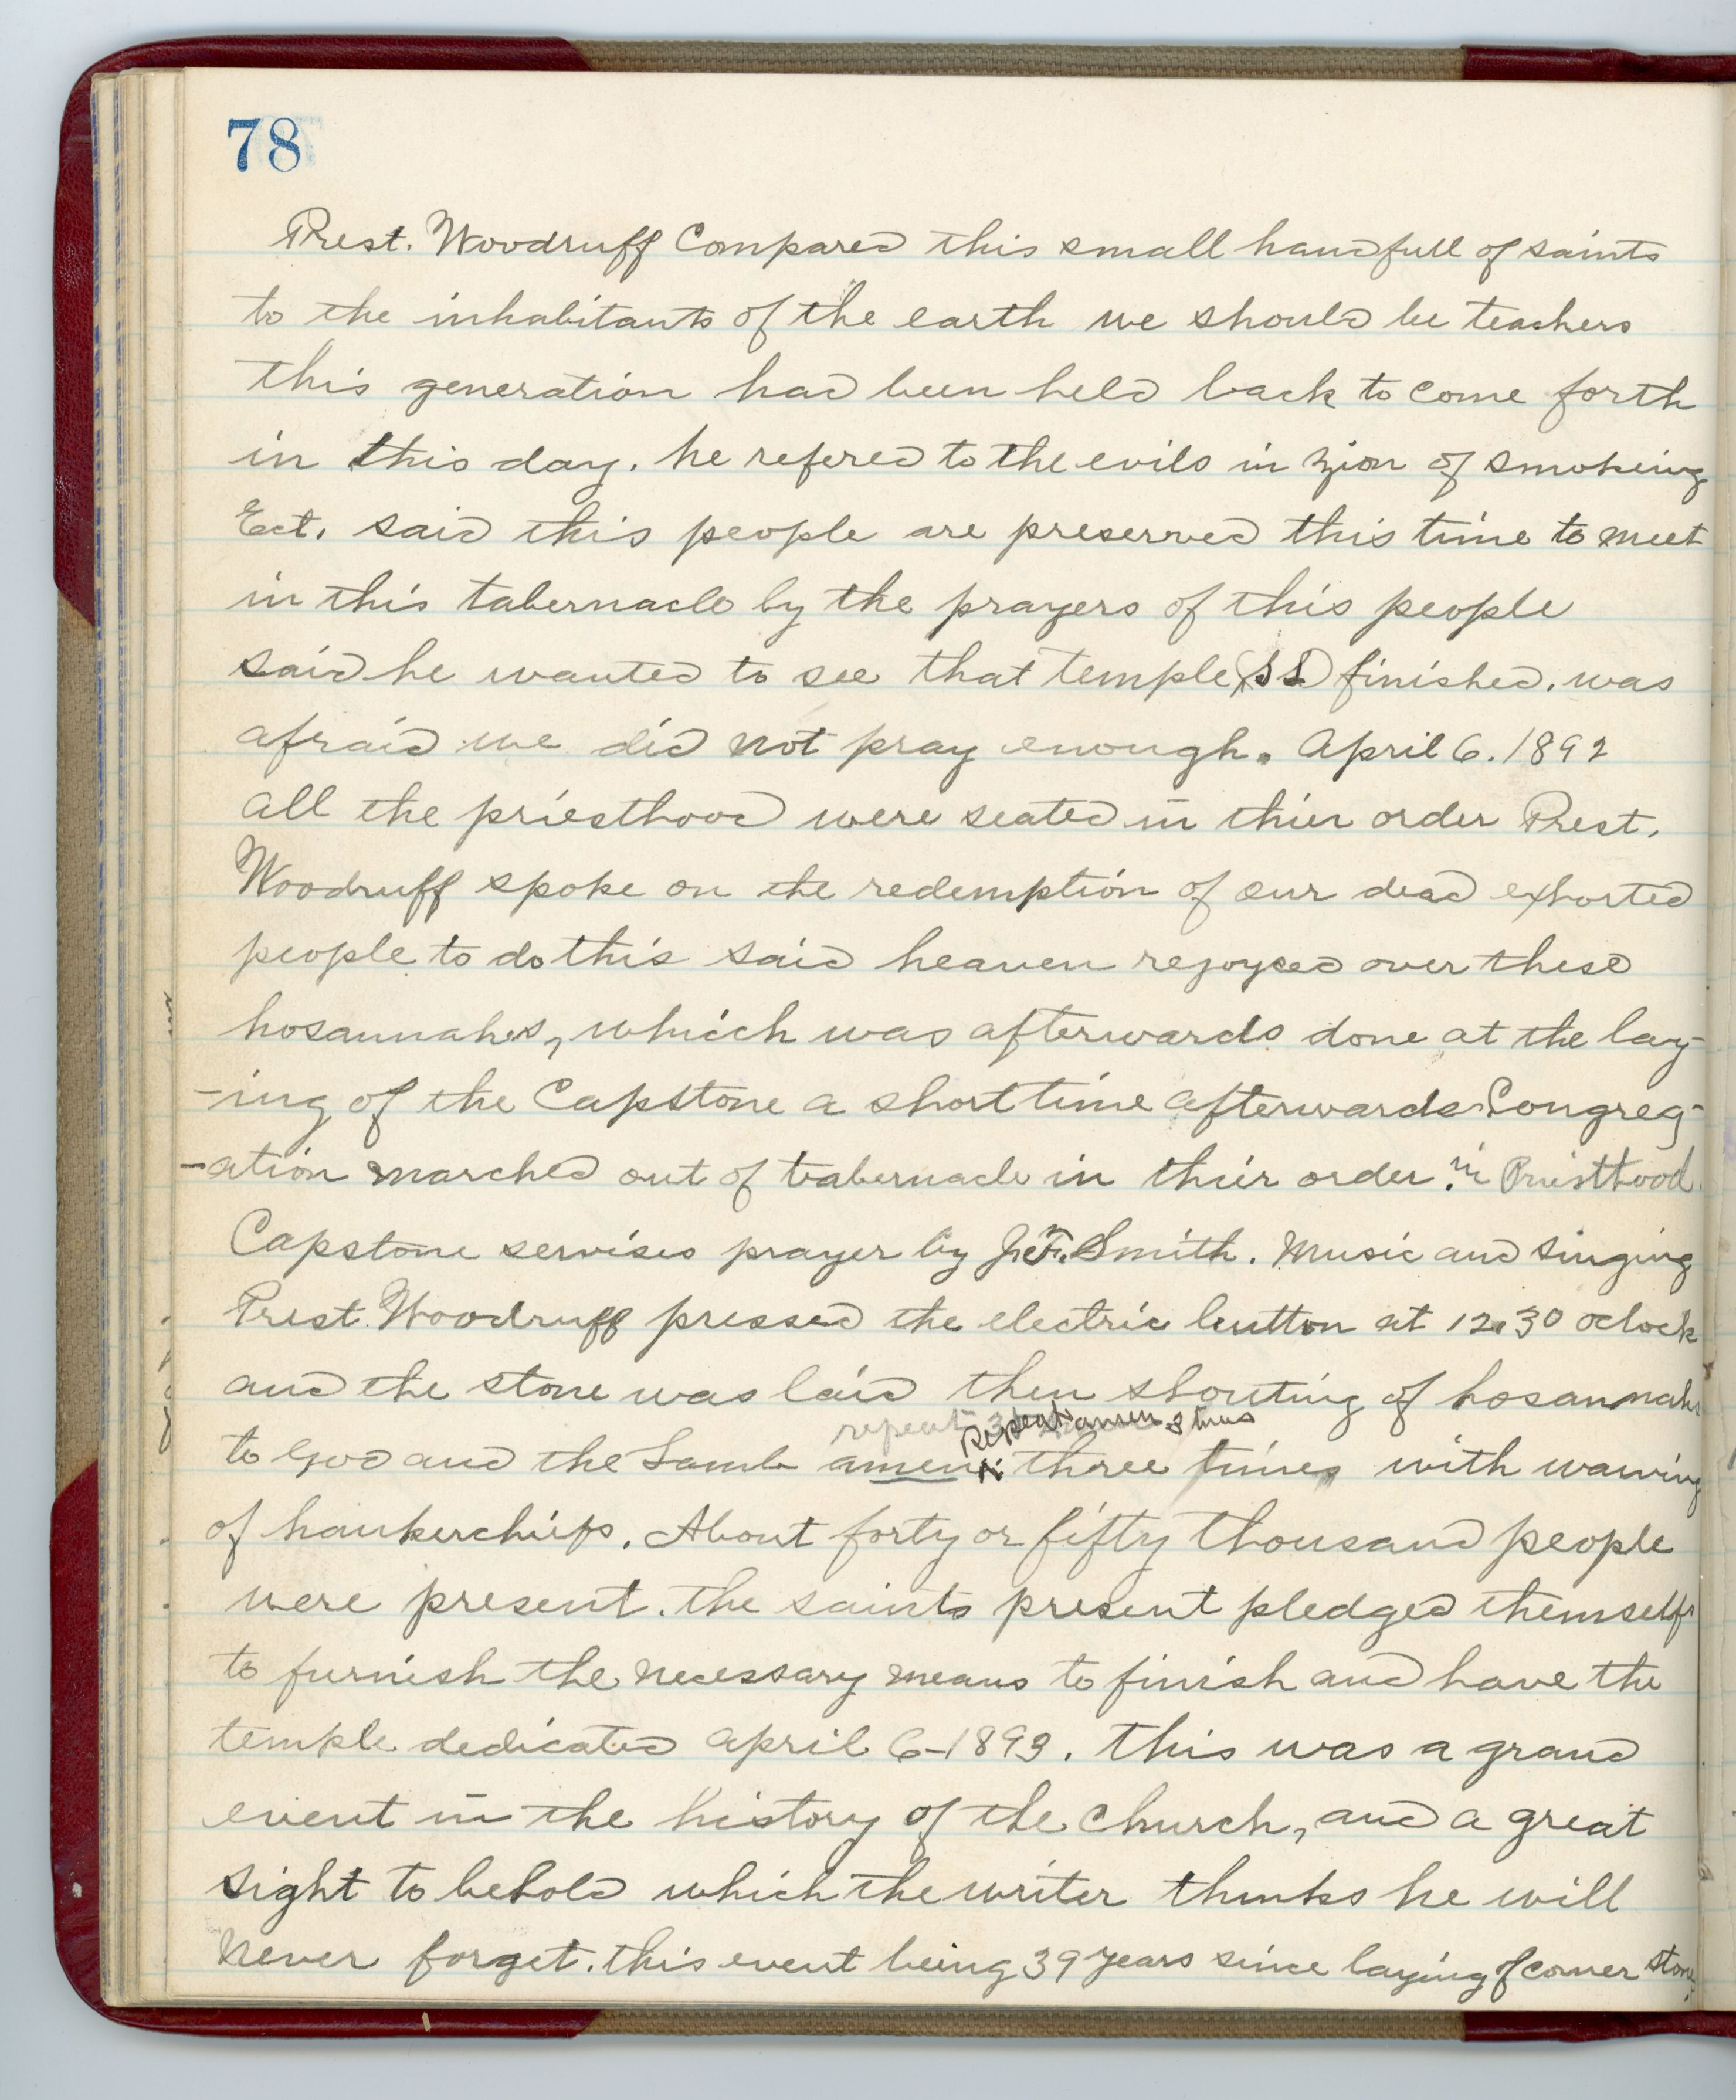 78
Prest. Woodruff Compared this small handfull of saints
to the inhabitants of the earth we should be teachers
this generation had been held back to come forth
in this day. he refered to the evils in Zion of smoking
Ect. said this people are preserved this time to meet
in this tabernacle by the prayers of this people
said he wanted to see that temple (S L) finished. was
afraid we did not pray enough. April 6. 1892
all the priesthood were seated in thier order Prest.
Woodruff spoke on the redemption of our dead exhorted
people to do this said heaven rejoyced over these
hosannahs, which was afterwards done at the lay-
-ing of the Capstone a short time afterwards Congreg-
-ation marched out of tabernacle in thier order. in Priesthood.
Capstone servises prayer by J. F. Smith. Music and singing
Prest. Woodruff pressed the electric button at 12.30 oclock
and the stone was laid then shouting of hosannahs
repeat Repeat amen 3 times
to God and the Lamb amen three times with waving
of hankerchiefs. About forty or fifty thousand people
were present. the saints present pledged themselfs
to furnish the necessary means to finish and have the
temple dedicated april 6-1893. this was a grand
event in the history of the church, and a great
sight to behold which the writer thinks he will
never forget. this event being 39 years since laying of corner stone.